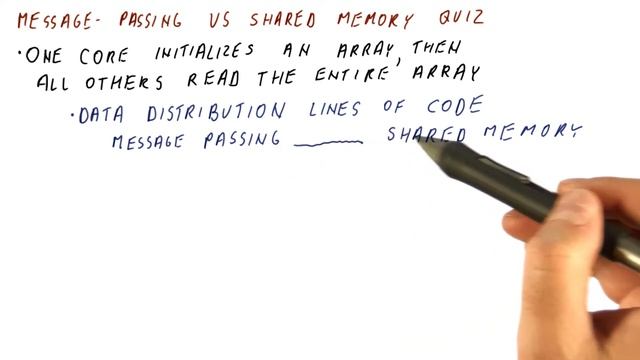 MESSAGE-PASSING VS SHARED MEMORY QUIZ
• ONE CORE INITIALIZES AN ARRAY, THEN
ALL OTHERS READ THE ENTIRE ARRAY
• DATA DISTRIBUTION LINES OF CODE
MESSAGE PASSING ______ SHARED MEMORY